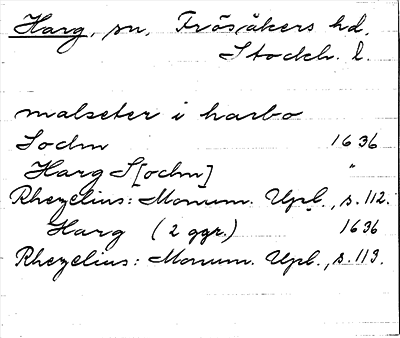 Harg, sn, Frösåkers hd,
Stockh. l.
malseter i harbo
Sochn 1636
Harg S[ochn] "
Rhezelius: Monum. Upl., s. 112.
Harg (2 ggr.) 1636
Rhezelius: Monum. Upl., s. 113.